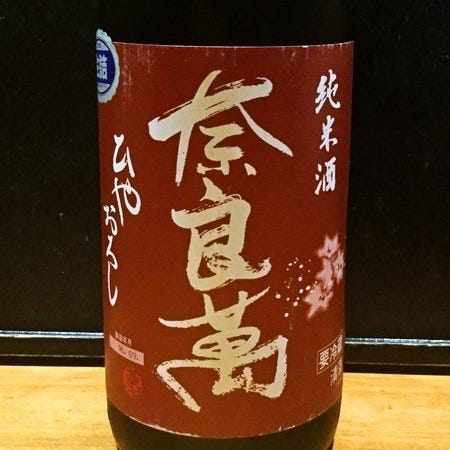 純米酒
奈良萬
ひやおろし
要冷
清
詰